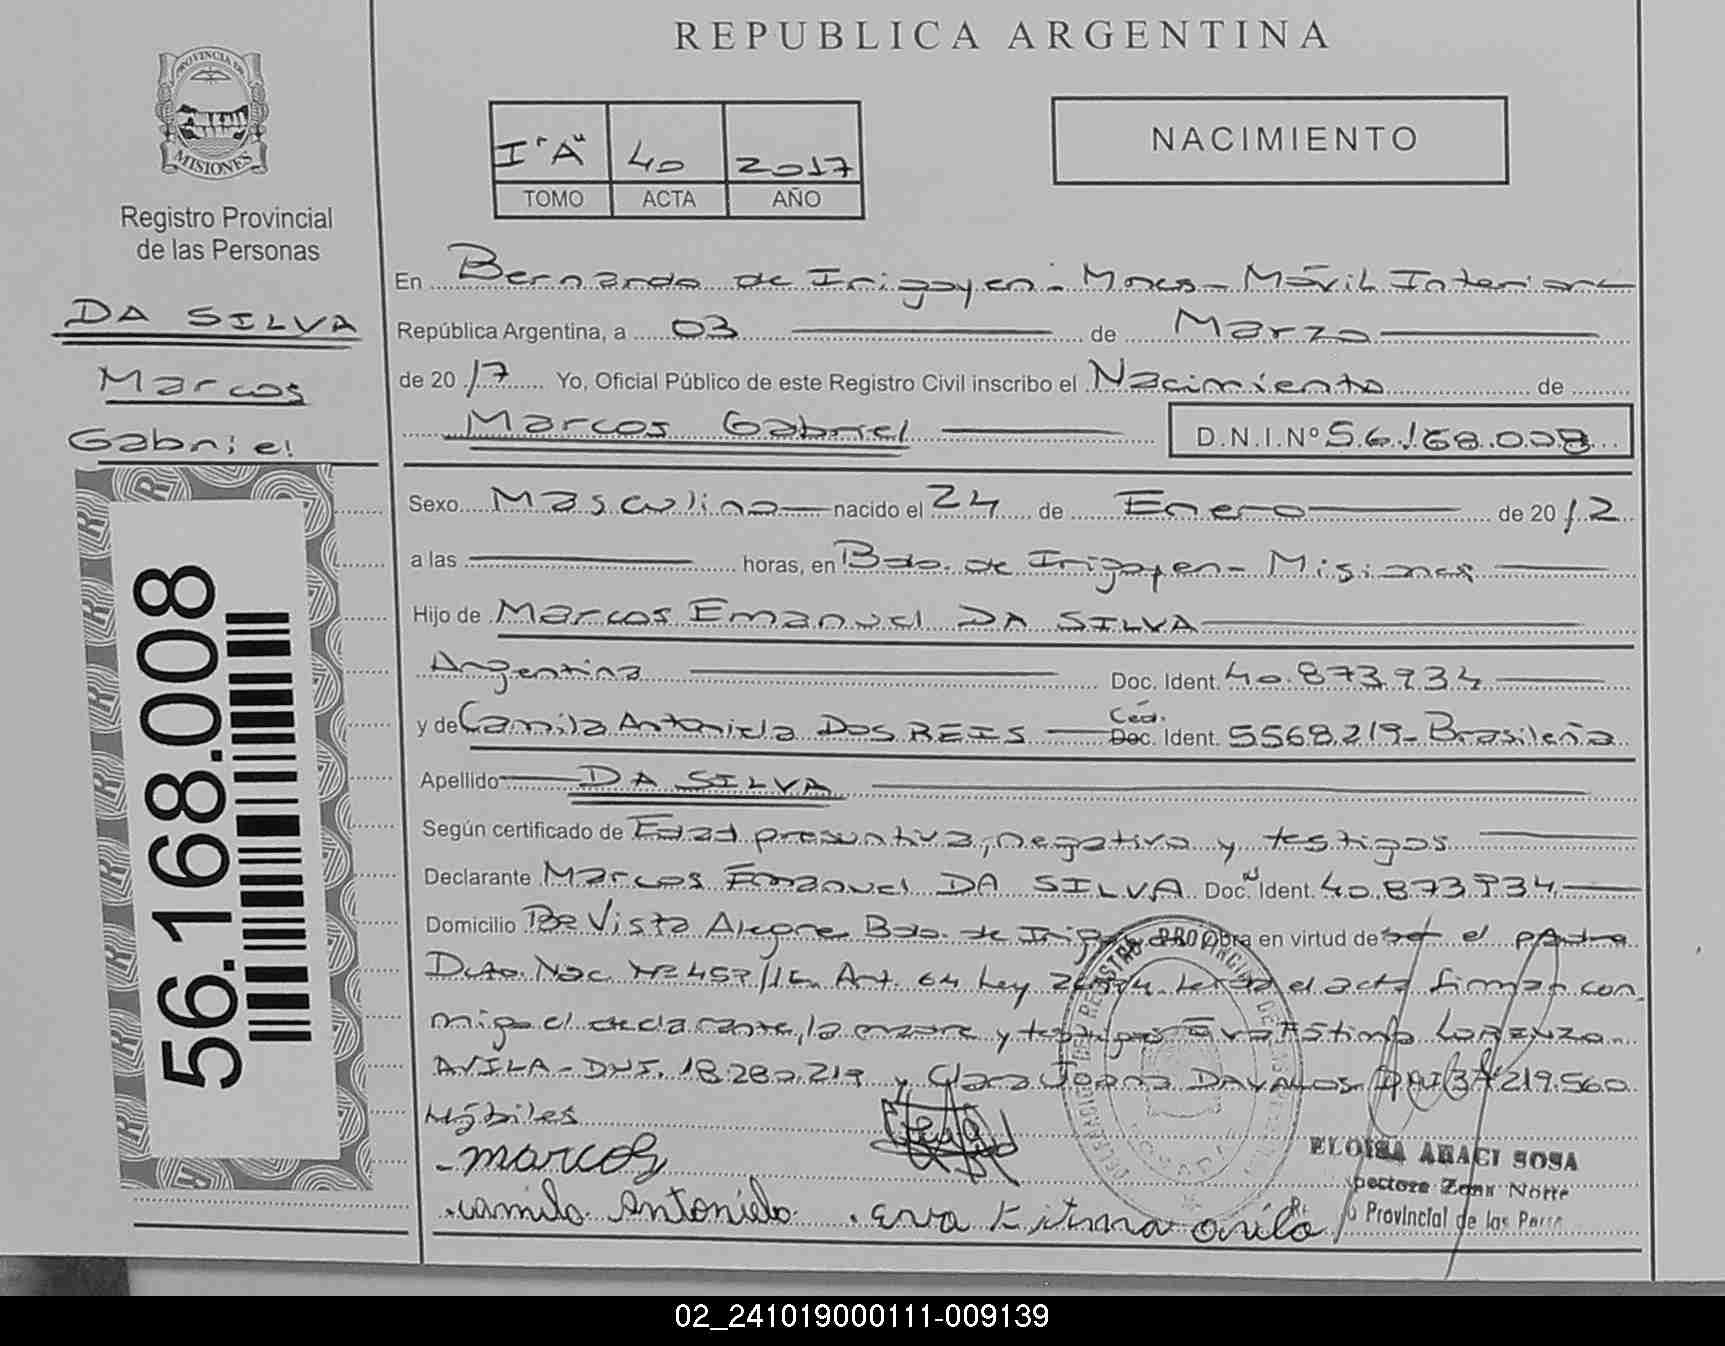 REPUBLICA ARGENTINA
PROVINCIA DE
MISIONES
Registro Provincial
de las Personas
DA SILVA
Marcos
Gabriel
56.168.008
I "A" 40 2017
TOMO ACTA AÑO
NACIMIENTO
En Bernardo de Irigoyen - Mnes - Móvil Interior
República Argentina, a 03 de Marzo
de 2017 Yo, Oficial Público de este Registro Civil inscribo el Nacimiento de
Marcos Gabriel D.N.I.Nº 56.168.008
Sexo Masculino nacido el 24 de Enero de 2012
a las horas, en Bdo. de Irigoyen - Misiones
Hijo de Marcos Emanuel DA SILVA
Argentina Doc. Ident. 40.873.934
y de Camila Antoniela DOS REIS Céd. Doc. Ident. 5568.219 - Brasileña
Apellido DA SILVA
Según certificado de Edad presuntiva, negativa y testigos
Declarante Marcos Emanuel DA SILVA Doc. Ident. 40.873.934
Domicilio Bº Vista Alegre Bdo. de Obra en virtud de ser el padre
Dcto. Nac. Nº 457/ Art. 64 Ley el acta firman con
migo el declarante, la madre y testigos LORENZO
AVILA - DNI. 18.280.219 y Clara Joana DAVALOS DNI 219.560
Hábiles
marcos
camila Antoniela eva
ELOISA ARACI SOSA
Zona Norte
Provincial de las Pers
02_241019000111-009139